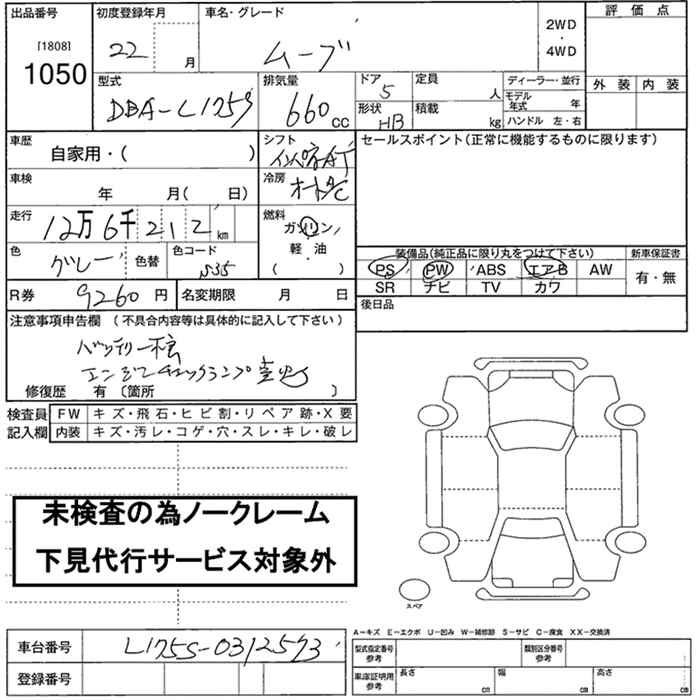 出品番号 初度登録年月 車名・グレード 2WD・4WD 評価点
[1808] 22 月 ムーブ
1050 外装 内装
型式 排気量 ドア 5 定員 人 ディーラー・並行
DBA-L175S 660cc 形状 HB 積載 kg モデル年式 年
ハンドル 左・右
車歴 自家用・( ) シフト インパネAT セールスポイント(正常に機能するものに限ります)
車検 年 月( 日) 冷房 オートA/C
走行 12万6千212km 燃料 ガソリン
軽・油
( )
色 グレー 色替 色コード S35
装備品(純正品に限り丸をつけて下さい) 新車保証書
PS PW ABS エアB AW 有・無
SR ナビ TV カワ
R券 9260円 名変期限 月 日 後日品
注意事項申告欄(不具合内容等は具体的に記入して下さい)
バッテリー
エンジンチェックランプ
修復歴 有〔箇所 〕
検査員 FW キズ・飛石・ヒビ割・リペア跡・X要
記入欄 内装 キズ・汚レ・コゲ・穴・スレ・キレ・破レ
未検査の為ノークレーム
下見代行サービス対象外
スペア
A-キズ E-エクボ U-凹み W-補修跡 S-サビ C-腐食 XX-交換済
車台番号 L175S-0312573
登録番号
型式指定番号 参考 類別区分番号 参考
車庫証明用 参考 長さ cm 幅 cm 高さ cm